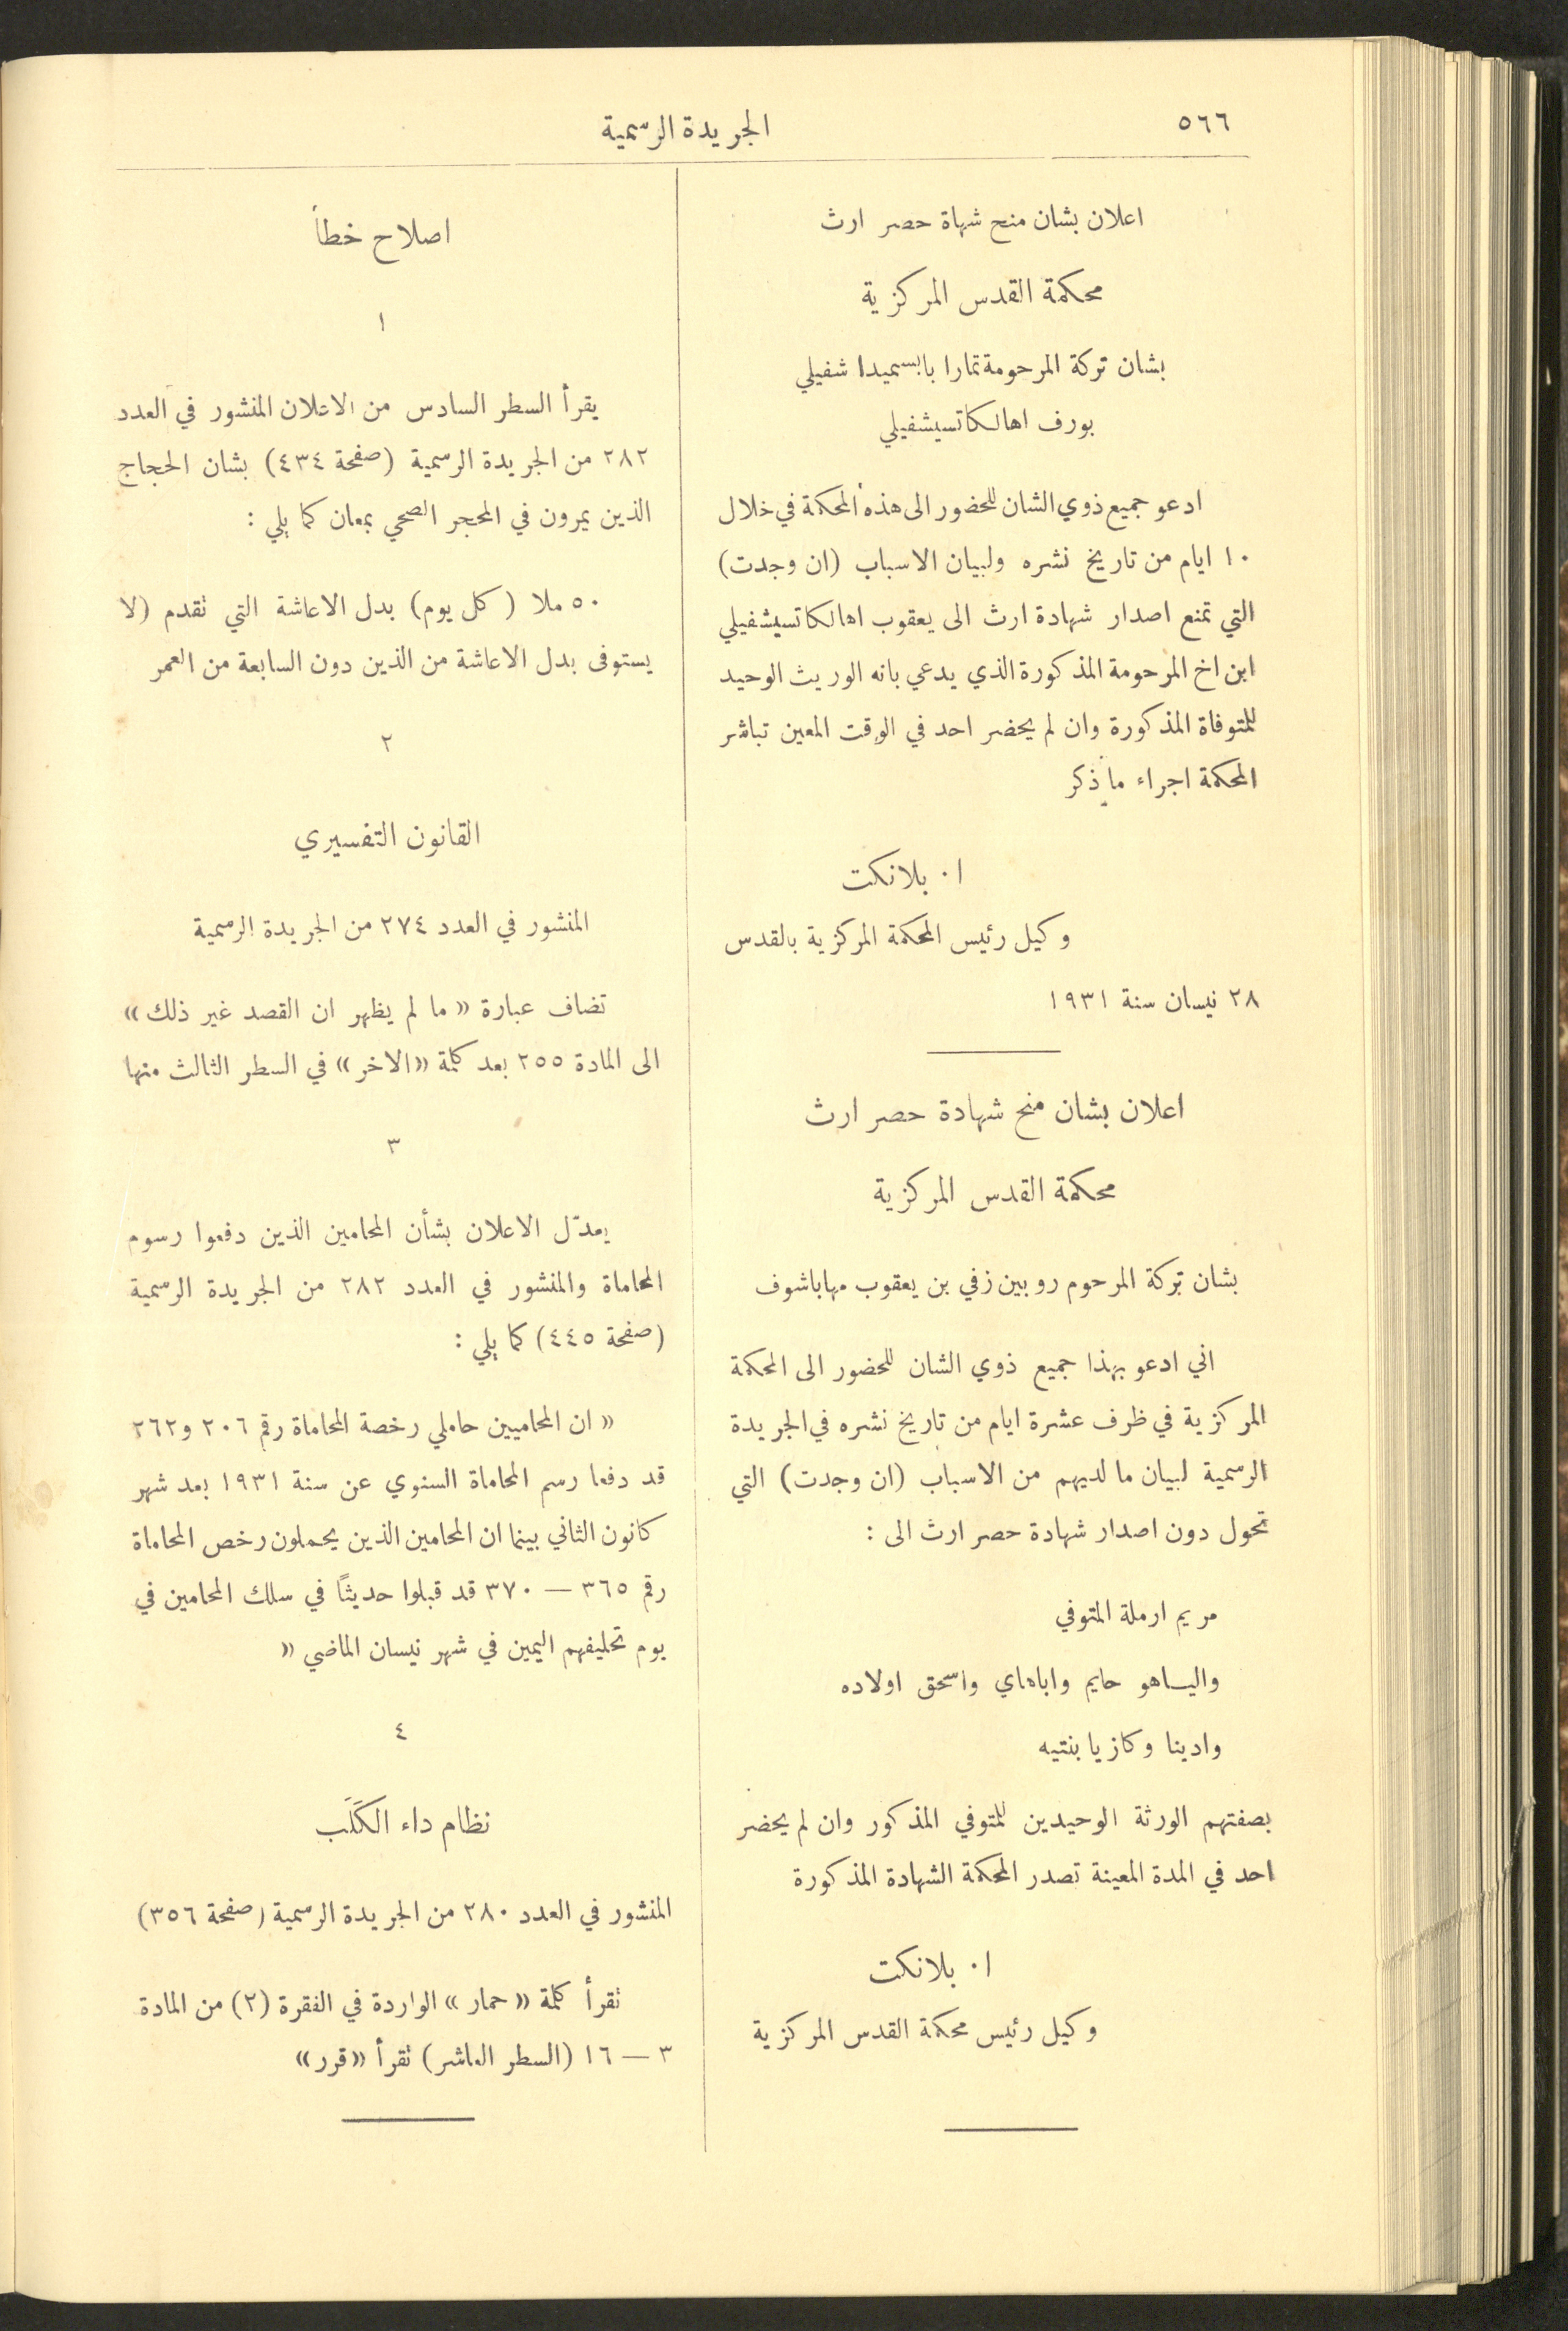 ٥٦٦
الجريدة الرسمية
اعلان بشان منح شهاة حصر ارث
محكمة القدس المركزية
بشان تركة المرحومة تمارا بابسميدا شفيلي
بورف اهالكاتسيشفيلي
ادعو جميع ذوي الشان للحضور الى هذه المحكمة في خلال
١٠ ايام من تاريخ نشره ولبيان الاسباب (ان وجدت)
التي تمنع اصدار شهادة ارث الى يعقوب اهالكاتسيشفيلي
ابن اخ المرحومة المذكورة الذي يدعي بانه الوريث الوحيد
للمتوفاة المذكورة وان لم يحضر احد في الوقت المعين تباشر
المحكمة اجراء ما ذكر
ا. بلانكت
وكيل رئيس المحكمة المركزية بالقدس
٢٨ نيسان سنة ١٩٣١
اعلان بشان منح شهادة حصر ارث
محكمة القدس المركزية
بشان تركة المرحوم روبين زفي بن يعقوب مهاباشوف
اني ادعو بهذا جميع ذوي الشان للحضور الى المحكمة
المركزية في ظرف عشرة ايام من تاريخ نشره في الجريدة
الرسمية لبيان ما لديهم من الاسباب (ان وجدت) التي
تحول دون اصدار شهادة حصر ارث الى :
مريم ارملة المتوفي
والياهو حايم واباهاي واسحق اولاده
وادينا وكازيا بنتيه
بصفتهم الورثة الوحيدين للمتوفي المذكور وان لم يحضر
احد في المدة المعينة تصدر المحكمة الشهادة المذكورة
ا. بلانكت
وكيل رئيس محكمة القدس المركزية
اصلاح خطأ
١
يقرأ السطر السادس من الاعلان المنشور في العدد
٢٨٢ من الجريدة الرسمية (صفحة ٤٣٤) بشان الحجاج
الذين يمرون في المحجر الصحي بمعان كما يلي :
٥٠ ملا (كل يوم) بدل الاعاشة التي تقدم (لا
يستوفى بدل الاعاشة من الذين دون السابعة من العمر
٢
القانون التفسيري
المنشور في العدد ٢٧٤ من الجريدة الرسمية
تضاف عبارة «ما لم يظهر ان القصد غير ذلك»
الى المادة ٢٥٥ بعد كلمة «الاخر» في السطر الثالث منها
٣
يعدّل الاعلان بشأن المحامين الذين دفعوا رسوم
المحاماة والمنشور في العدد ٢٨٢ من الجريدة الرسمية
(صفحة ٤٤٥) كما يلي :
«ان المحاميين حاملي رخصة المحاماة رقم ٢٠٦ و٢٦٢
قد دفعا رسم المحاماة السنوي عن سنة ١٩٣١ بعد شهر
كانون الثاني بينما ان المحامين الذين يحملون رخص المحاماة
رقم ٣٦٥ — ٣٧٠ قد قبلوا حديثًا في سلك المحامين في
يوم تحليفهم اليمين في شهر نيسان الماضي «
٤
نظام داء الكَلَب
المنشور في العدد ٢٨٠ من الجريدة الرسمية (صفحة ٣٥٦)
تقرأ كلمة «حمار» الواردة في الفقرة (٢) من المادة
٣ — ١٦ (السطر العاشر) تقرأ «قرر»